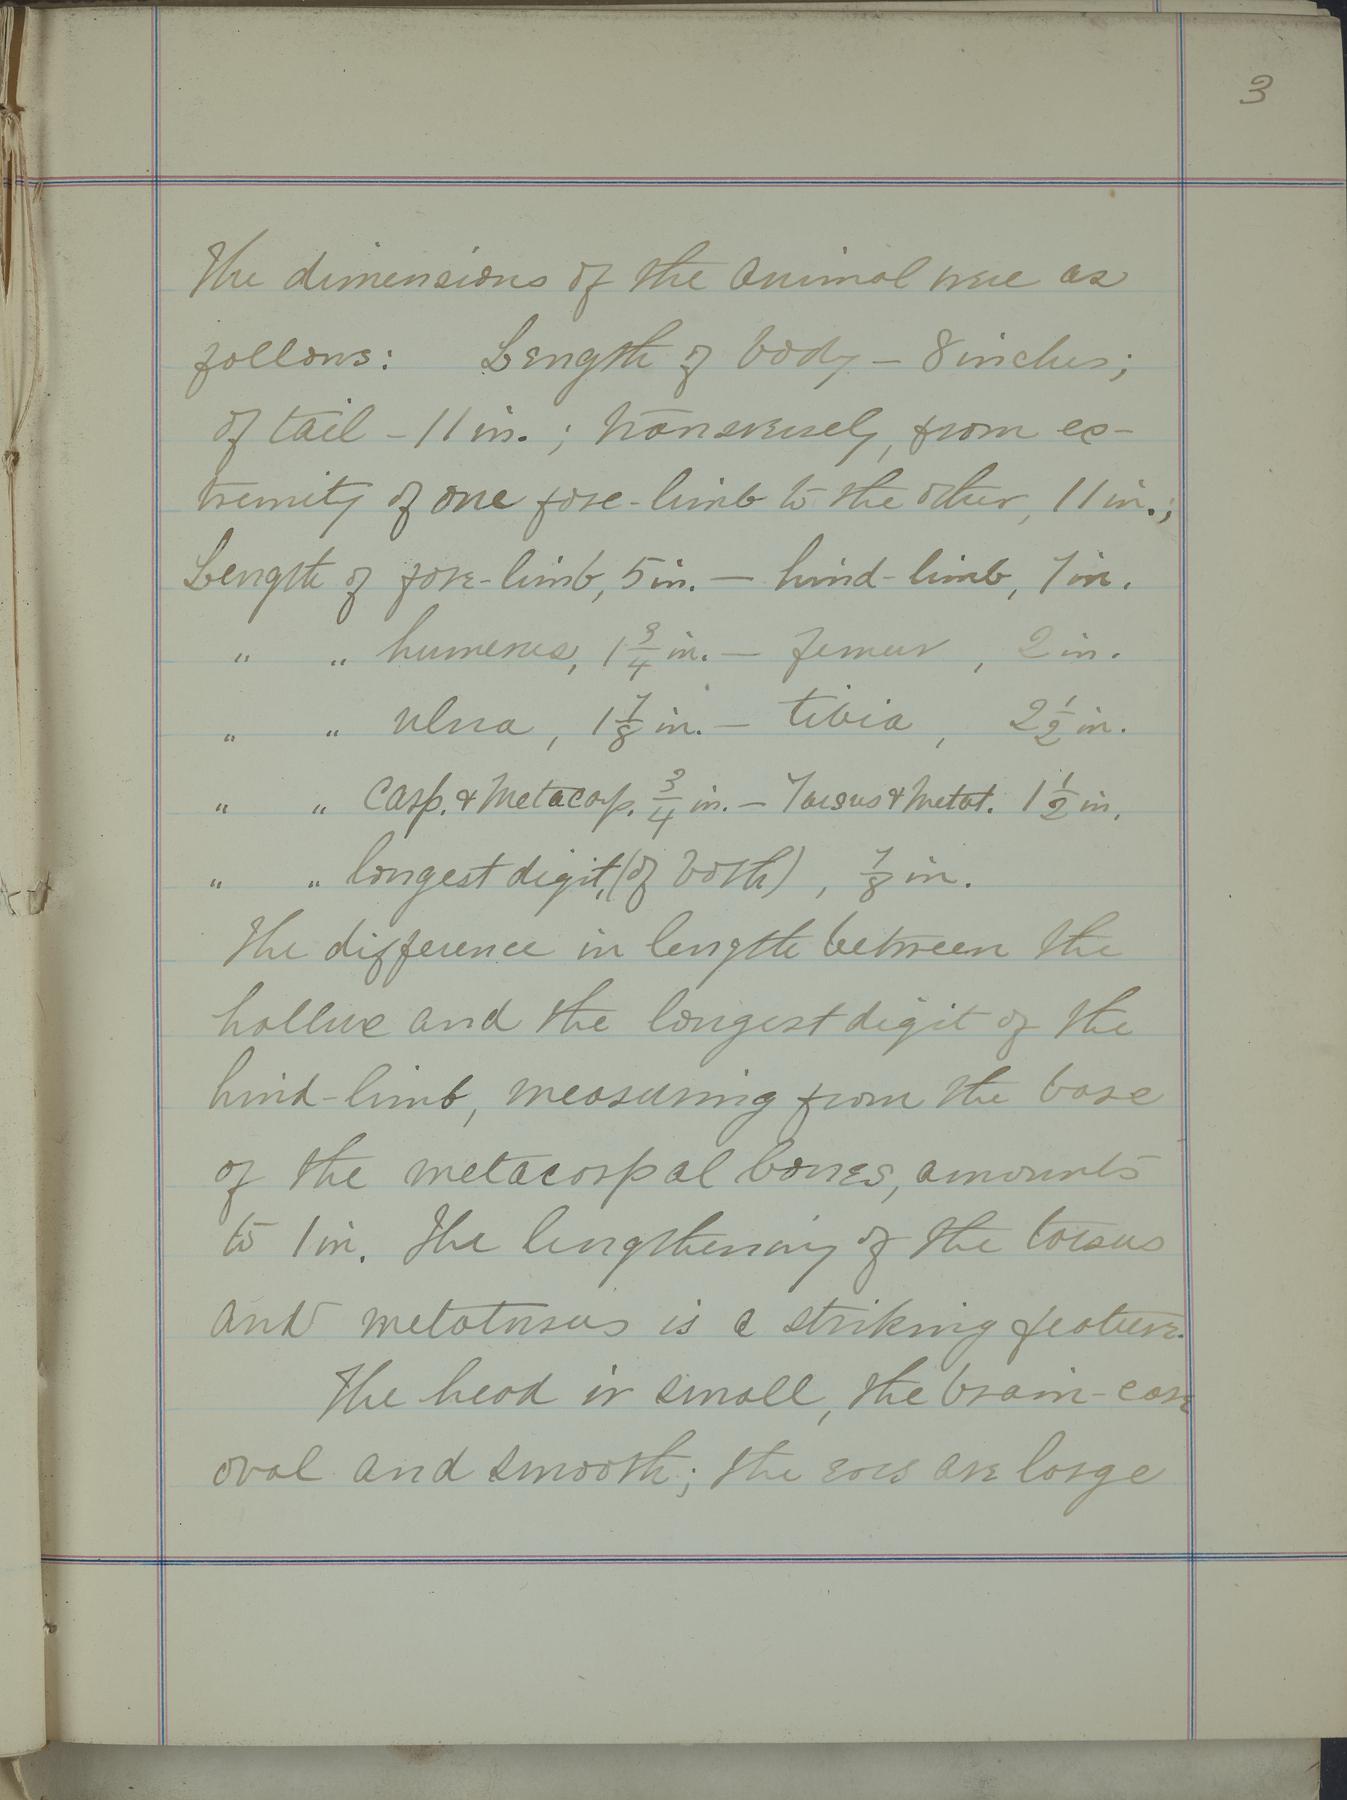 3
The dimensions of the animal were as
follows: Length of body – 8 inches;
of tail – 11 in. ; transversely, from ex-
tremity of one fore-limb to the other, 11 in.;
Length of fore-limb, 5 in. — hind-limb, 7 in.
" " humerus, 1 3/4 in. — femur , 2 in.
" " ulna , 1 7/8 in. — tibia , 2 1/2 in.
" " Carp. & Metacarp. 3/4 in. — Tarsus & Metat. 1 1/2 in.
" " longest digit, (of both) , 7/8 in.
The difference in length between the
hallux and the longest digit of the
hind-limb, measuring from the base
of the metacarpal bones, amounts
to 1 in. The lengthening of the tarsus
and metatarsus is a striking feature.
The head is small, the brain-case
oval and smooth; the ears are large